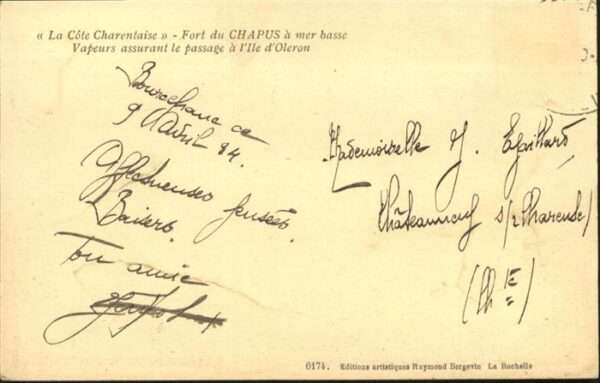 « La Côte Charentaise » - Fort du CHAPUS à mer basse
Vapeurs assurant le passage à l'Ile d'Oleron
Bourcefranc ce
9 Avril 34.
Affectueuses pensées
Baisers.
Ton amie
Mademoiselle J.
Châteauneuf s/ Charente
(Ch te)
0174. Editions artistiques Raymond Bergevin La Rochelle